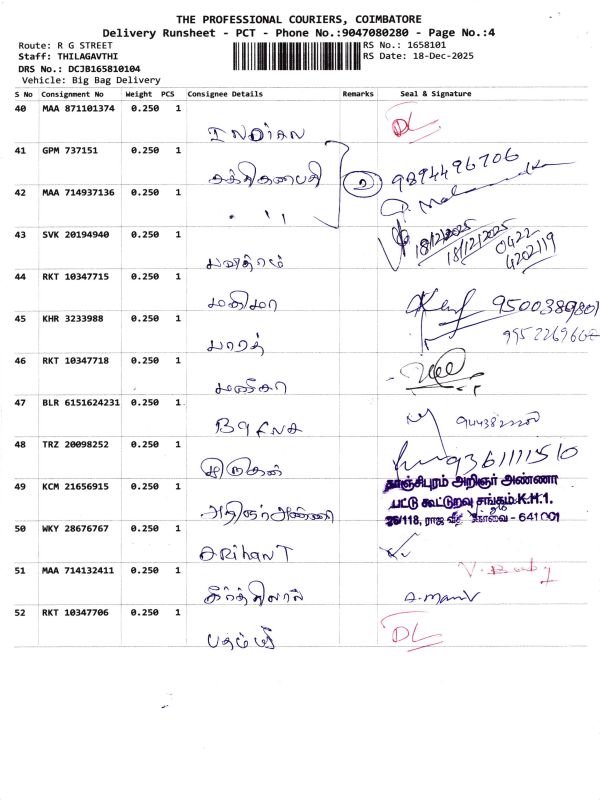 THE PROFESSIONAL COURIERS, COIMBATORE
Delivery Runsheet - PCT - Phone No.:9047080280 - Page No.:4
Route: R G STREET
RS No.: 1658101
Staff: THILAGAVTHI
RS Date: 18-Dec-2025
DRS No.: DCJB165810104
Vehicle: Big Bag Delivery
S No Consignment No Weight PCS Consignee Details Remarks Seal & Signature
40 MAA 871101374 0.250 1
INDIAN DL
41 GPM 737151 0.250 1
சக்தி கணபதி 2 9894496706
42 MAA 714937136 0.250 1
"
43 SVK 20194940 0.250 1
18/12/2025 18/12/2025 0422 4202119
44 RKT 10347715 0.250 1
மகிமா 9500389801
45 KHR 3233988 0.250 1
பாரத்
46 RKT 10347718 0.250 1
47 BLR 6151624231 0.250 1
48 TRZ 20098252 0.250 1
முருகன் 9361111510
49 KCM 21656915 0.250 1
காஞ்சிபுரம் அறிஞர் அண்ணா
பட்டு கூட்டுறவு சங்கம் K.H.1.
25/118, ராஜ வீதி கோவை - 641001
50 WKY 28676767 0.250 1
ARihanT
51 MAA 714132411 0.250 1
கீர்த்திலால் A.Mani
52 RKT 10347706 0.250 1
DL